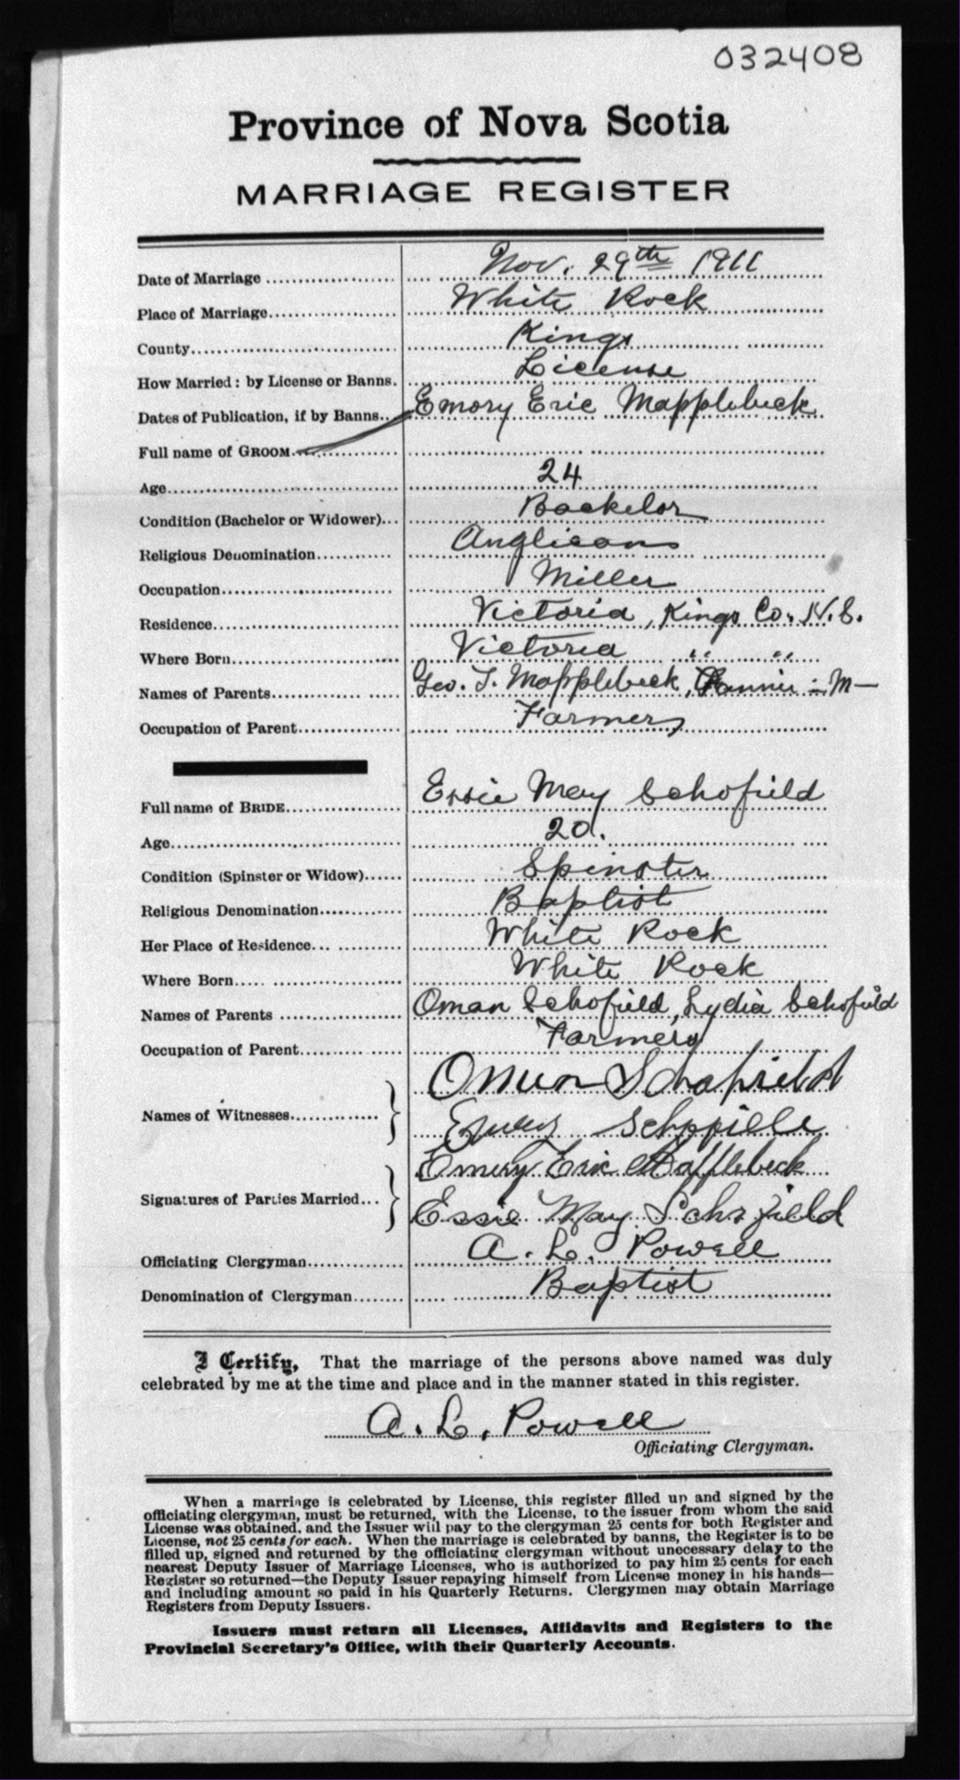 032408
Province of Nova Scotia
MARRIAGE REGISTER
Date of Marriage Nov. 29th 1911
Place of Marriage White Rock
County Kings
How Married: by License or Banns. License
Dates of Publication, if by Banns Emory Eric Mapplebeck
Full name of GROOM
Age 24
Condition (Bachelor or Widower) Bachelor
Religious Denomination Anglican
Occupation Miller
Residence Victoria, Kings Co. N.S.
Where Born Victoria " "
Names of Parents Geo. T. Mapplebeck, Fannie - M-
Occupation of Parent Farmers
Full name of BRIDE Essie May Schofield
Age 20.
Condition (Spinster or Widow) Spinster
Religious Denomination Baptist
Her Place of Residence White Rock
Where Born White Rock
Names of Parents Oman Schofield, Lydia Schofield
Occupation of Parent Farmers
Names of Witnesses Schofield
Signatures of Parties Married Emery Eric Mapplebeck
Essie May Schofield
Officiating Clergyman A. L. Powell
Denomination of Clergyman Baptist
I Certify, That the marriage of the persons above named was duly
celebrated by me at the time and place and in the manner stated in this register.
A. L. Powell
Officiating Clergyman.
When a marriage is celebrated by License, this register filled up and signed by the
officiating clergyman, must be returned, with the License, to the issuer from whom the said
License was obtained, and the Issuer will pay to the clergyman 25 cents for both Register and
License, not 25 cents for each. When the marriage is celebrated by banns, the Register is to be
filled up, signed and returned by the officiating clergyman without unnecessary delay to the
nearest Deputy Issuer of Marriage Licenses, who is authorized to pay him 25 cents for each
Register so returned—the Deputy Issuer repaying himself from License money in his hands—
and including amount so paid in his Quarterly Returns. Clergymen may obtain Marriage
Registers from Deputy Issuers.
Issuers must return all Licenses, Affidavits and Registers to the
Provincial Secretary's Office, with their Quarterly Accounts.